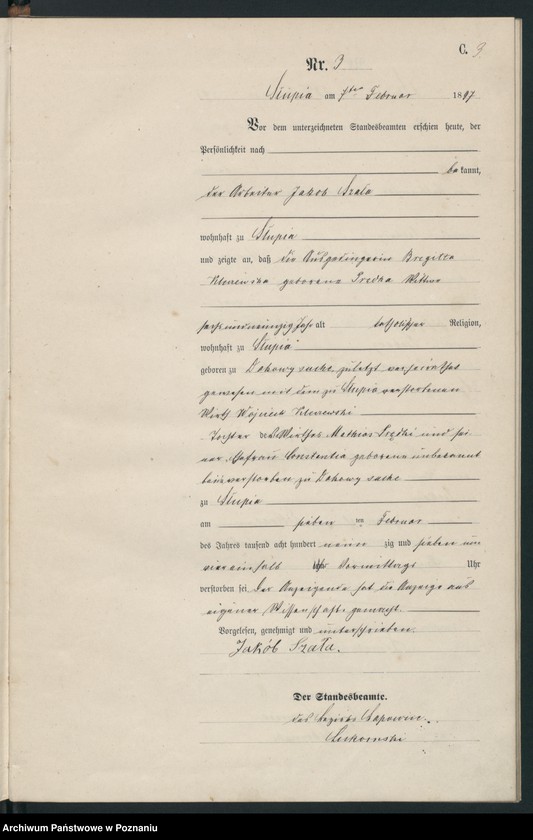 C. 3.
Nr. 3
Słupia am 7ten Februar 1897
Vor dem unterzeichneten Standesbeamten erschien heute, der
Persönlichkeit nach
bekannt,
der Arbeiter Jakob Szała
wohnhaft zu Słupia
und zeigte an, daß die Ausgedingerin
geborene Wittwe
sechsundneunzig Jahr alt katholischer Religion,
wohnhaft zu Słupia
geboren zu Dakowy suche zuletzt verheirathet
gewesen mit dem zu Słupia verstorbenen
Wirth Wojciech
Tochter des Wirthes Mathias und sei-
ner Ehefrau Constantia geborene unbekannt
beide verstorben zu Dakowy suche
zu Słupia
am sieben ten Februar
des Jahres tausend acht hundert neun zig und sieben um
viereinhalb Uhr Vormittags Uhr
verstorben sei. Der Anzeigende hat die Anzeige aus
eigener Wissenschaft gemacht.
Vorgelesen, genehmigt und unterschrieben.
Jakób Szała.
Der Standesbeamte.
des Bezirks
Archiwum Państwowe w Poznaniu